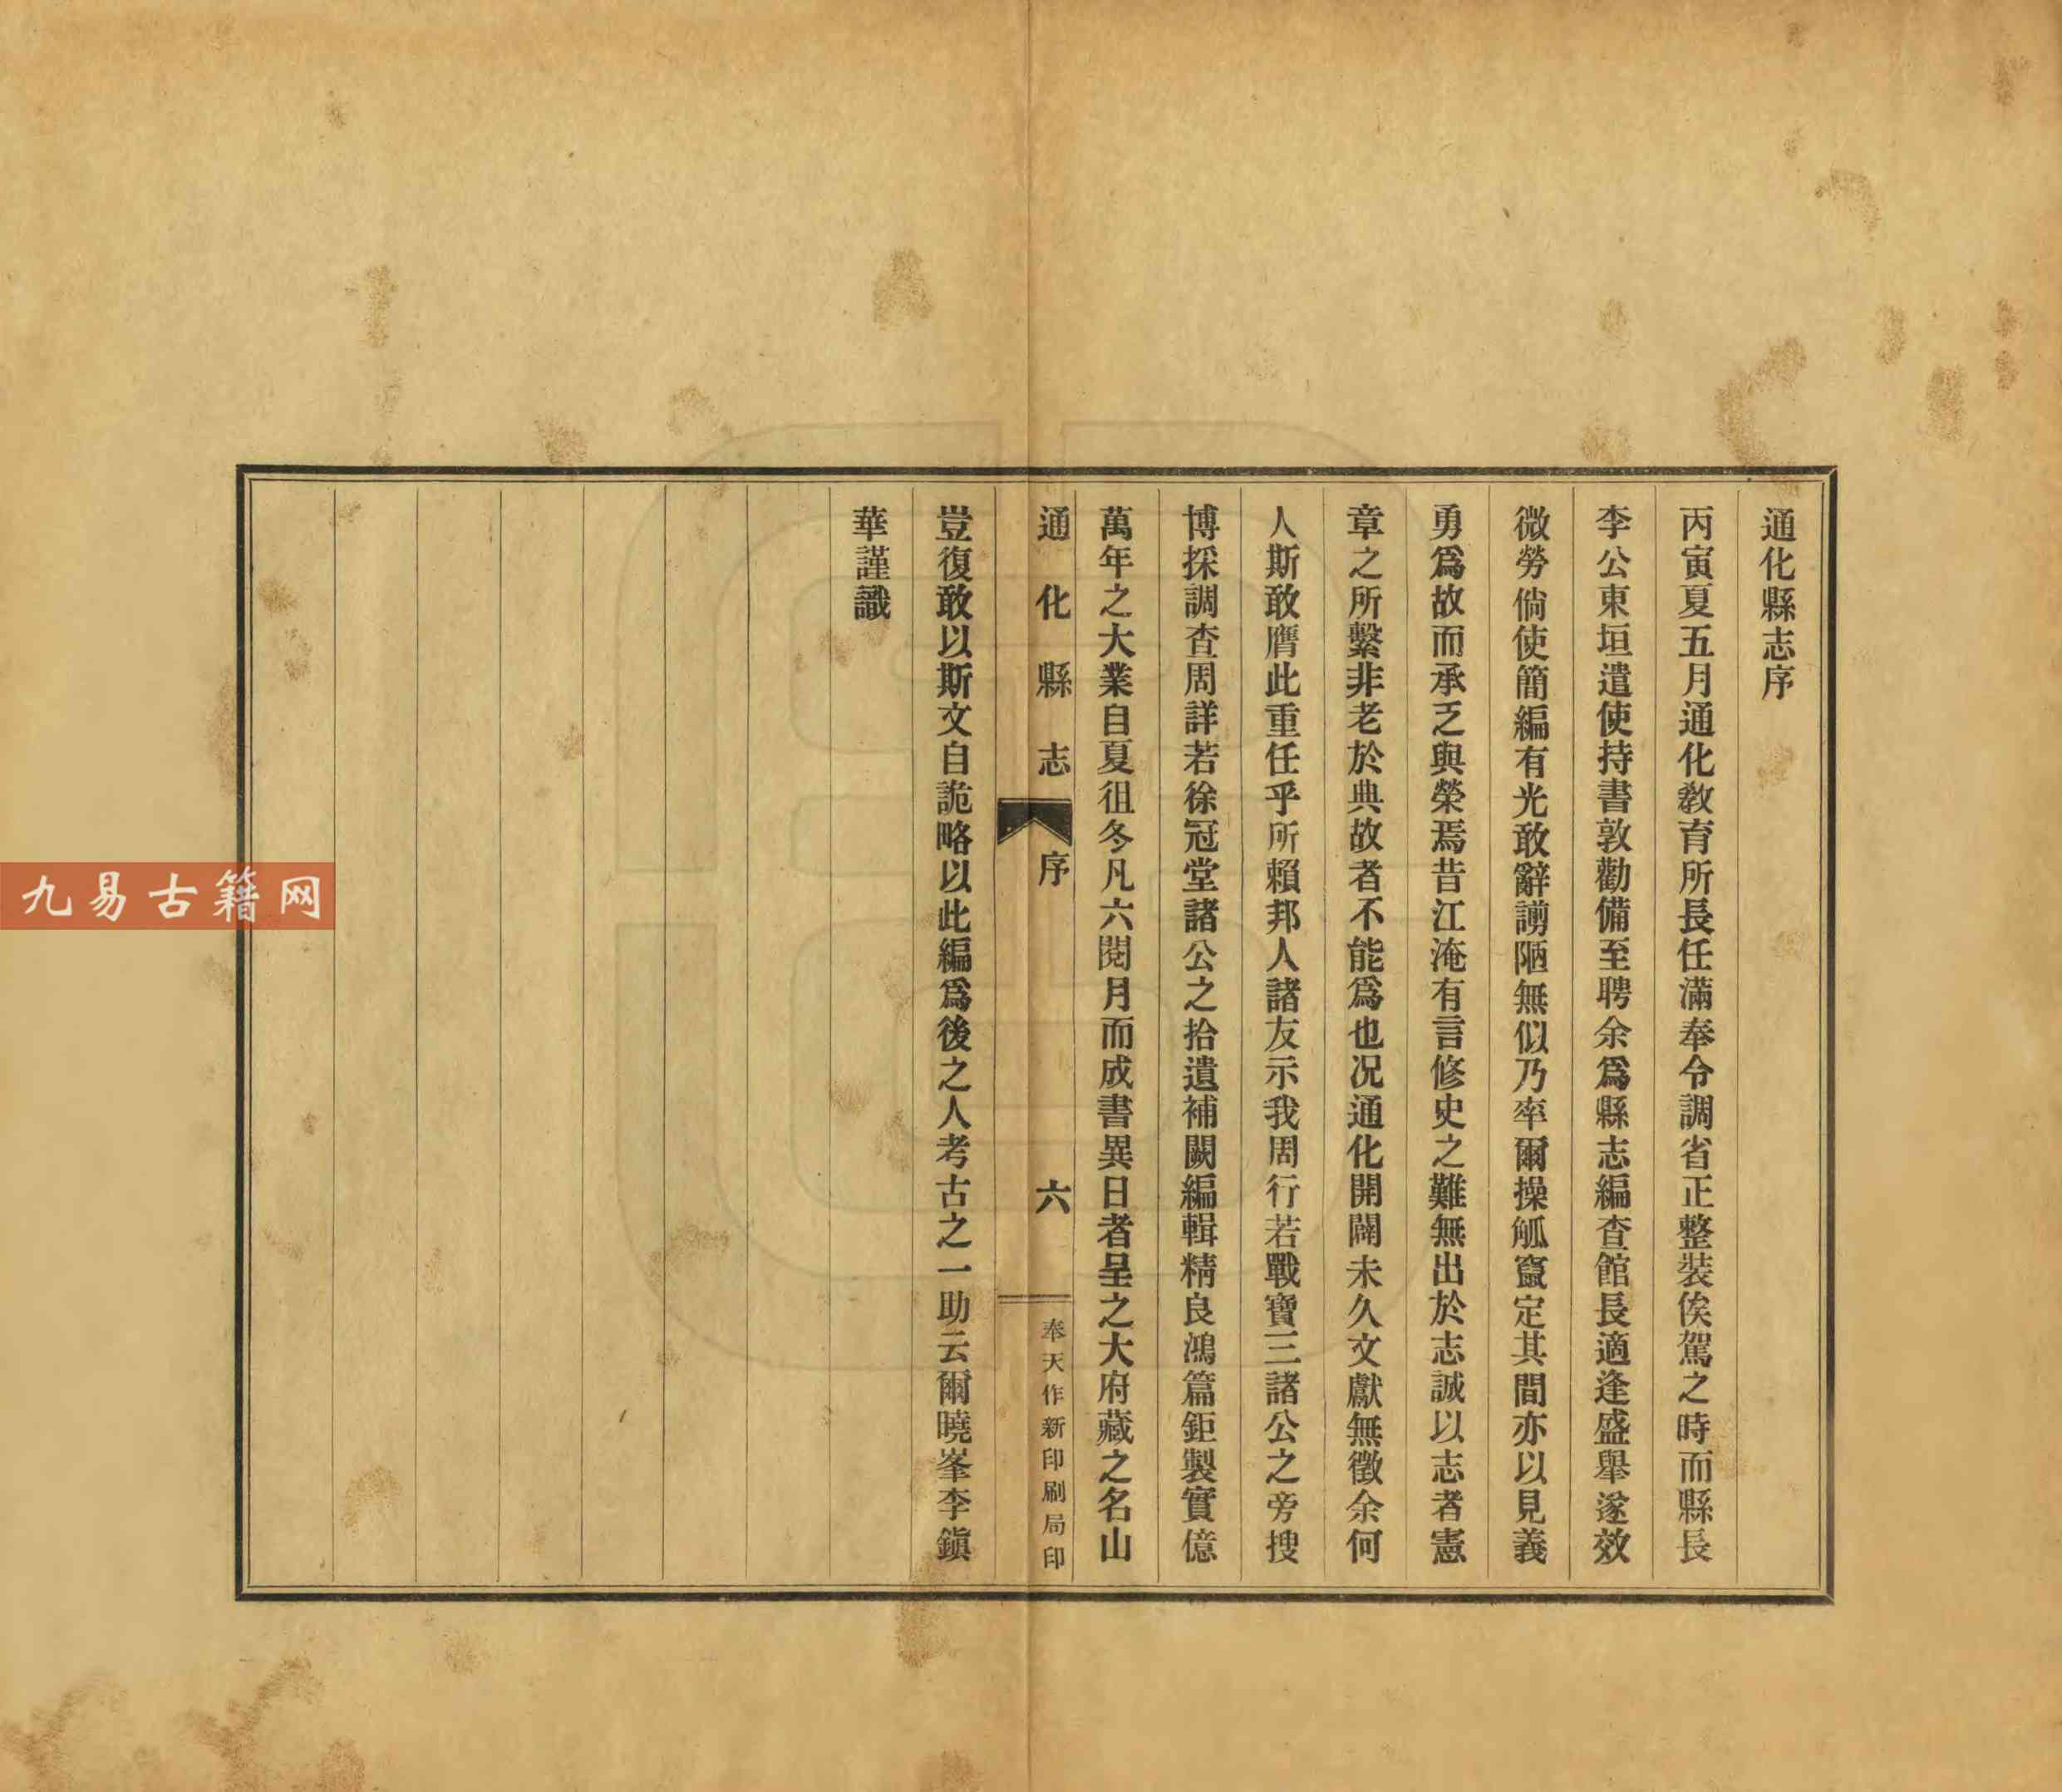 通化縣志序
丙寅夏五月通化敎育所長任滿奉令調省正整裝俟駕之時而縣長
李公東垣遣使持書敦勸備至聘余爲縣志編查館長適逢盛舉遂效
微勞倘使簡編有光敢辭譾陋無似乃率爾操觚竄定其間亦以見義
勇爲故而承乏與榮焉昔江淹有言修史之難無出於志誠以志者憲
章之所繫非老於典故者不能爲也况通化開闢未久文獻無徵余何
人斯敢膺此重任乎所賴邦人諸友示我周行若戰寶三諸公之旁搜
博採調查周詳若徐冠堂諸公之拾遺補闕編輯精良鴻篇鉅製實億
萬年之大業自夏徂冬凡六閱月而成書異日者呈之大府藏之名山
通化縣志
序
六
奉天作新印刷局印
豈復敢以斯文自詭略以此編爲後之人考古之一助云爾曉峯李鎭
華謹識
九易古籍网